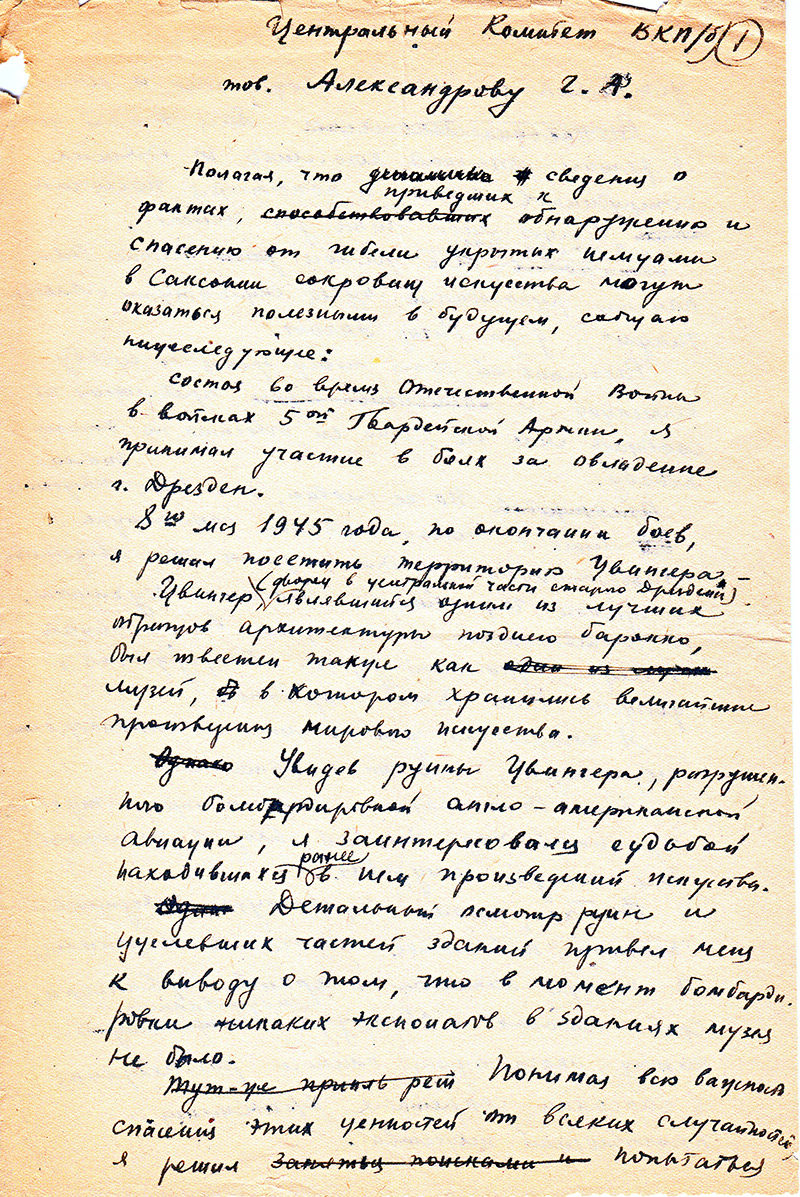 Центральный Комитет ВКП/б/ 1
тов. Александрову Г. А.
Полагая, что сведения о
приведших к
фактах, способствовавших обнаружению и
спасению от гибели укрытых немцами
в Саксонии сокровищ искусства могут
оказаться полезными в будущем, сообщаю
нижеследующее:
Состоя во время Отечественной Войны
в войсках 5ой Гвардейской Армии, я
принимал участие в боях за овладение
г. Дрезден.
8го мая 1945 года, по окончании боев,
я решил посетить территорию Цвингера.
(дворец в центральной части старого Дрездена)
Цвингер, являвшийся одним из лучших
образцов архитектуры позднего барокко,
был известен также как один из
музей, в котором хранились величайшие
произведения мирового искусства.
Однако Увидев руины Цвингера, разрушен-
ного бомбардировкой англо-американской
авиации, я заинтересовался судьбой
ранее
находившихся в нем произведений искусства.
Детальный осмотр руин и
уцелевших частей зданий привел меня
к выводу о том, что в момент бомбарди-
ровки никаких экспонатов в зданиях музея
не было.
Тут-же Понимая всю важность
спасения этих ценностей от всяких случайностей,
я решил заняться поисками и попытаться